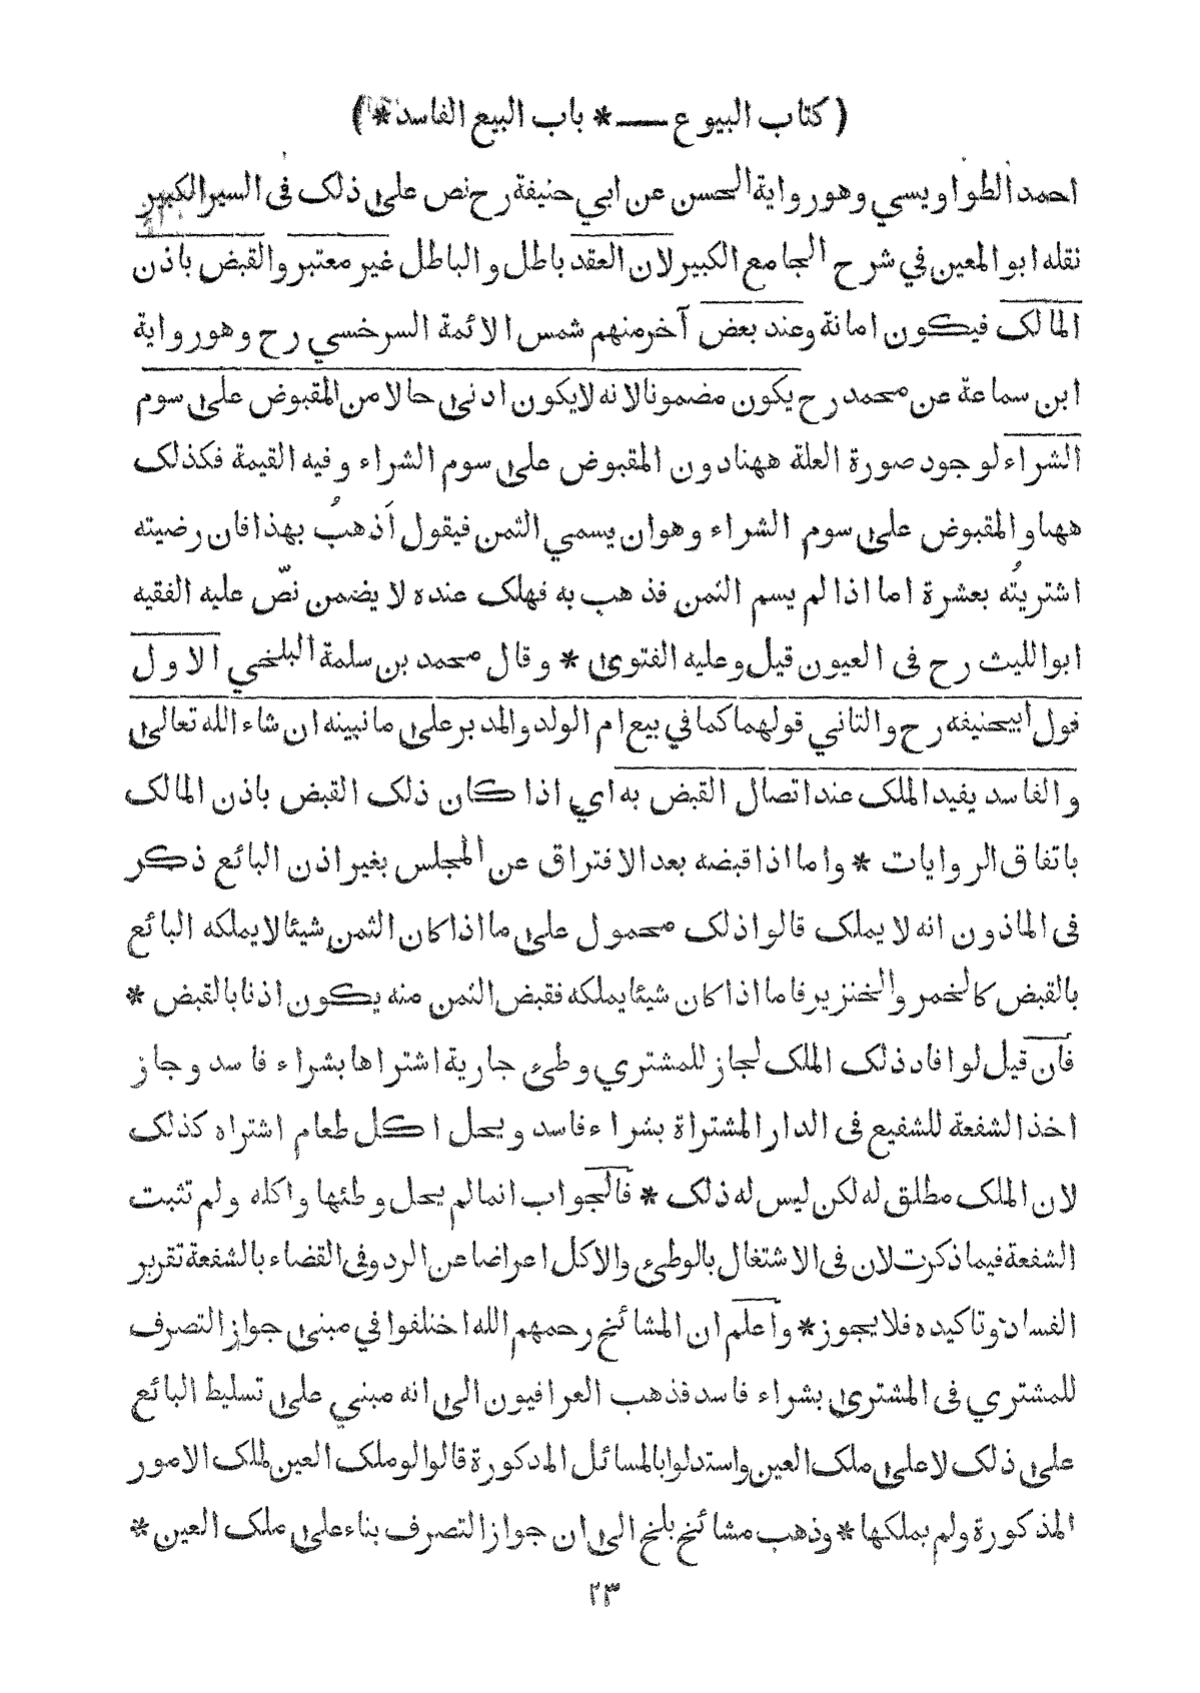 ( كتاب البيوع — * باب البيع الفاسد * )
احمد الطواويسي وهو رواية الحسن عن ابي حنيفة رح نص على ذلك فى السير الكبير
نقله ابو المعين في شرح الجامع الكبير لان العقد باطل والباطل غير معتبر والقبض باذن
المالك فيكون امانة وعند بعض آخر منهم شمس الائمة السرخسي رح وهو رواية
ابن سماعة عن محمد رح يكون مضمونا لانه لا يكون ادنى حالا من المقبوض على سوم
الشراء لوجود صورة العلة ههنا دون المقبوض على سوم الشراء وفيه القيمة فكذلك
ههنا والمقبوض على سوم الشراء وهو ان يسمي الثمن فيقول اَذهبُ بهذا فان رضيته
اشتريتُه بعشرة اما اذا لم يسم الثمن فذهب به فهلك عنده لا يضمن نصّ عليه الفقيه
ابو الليث رح فى العيون قيل وعليه الفتوى * وقال محمد بن سلمة البلخي الاول
قول أبيحنيفه رح والثاني قولهما كما في بيع ام الولد والمدبر على ما نبينه ان شاء الله تعالى
والفاسد يفيد الملك عند اتصال القبض به اي اذا كان ذلك القبض باذن المالك
باتفاق الروايات * واما اذا قبضه بعد الافتراق عن المجلس بغير اذن البائع ذكر
فى الماذون انه لا يملك قالوا ذلك محمول على ما اذا كان الثمن شيئا لا يملكه البائع
بالقبض كالخمر والخنزير فاما اذا كان شيئا يملكه فقبض الثمن منه يكون اذنا بالقبض *
فأن قيل لو افاد ذلك الملك لجاز للمشتري وطئ جارية اشتراها بشراء فاسد وجاز
اخذ الشفعة للشفيع فى الدار المشتراة بشراء فاسد ويحل اكل طعام اشتراه كذلك
لان الملك مطلق له لكن ليس له ذلك * فالجواب انما لم يحل وطئها واكله ولم تثبت
الشفعة فيما ذكرت لان فى الاشتغال بالوطئ والاكل اعراضا عن الرد وفى القضاء بالشفعة تقرير
الفساد وتاكيده فلا يجوز * وأعلم ان المشائخ رحمهم الله اختلفوا في مبنى جواز التصرف
للمشتري فى المشترى بشراء فاسد فذهب العراقيون الى انه مبني على تسليط البائع
على ذلك لا على ملك العين واستدلوا بالمسائل المذكورة قالوا لو ملك العين لملك الامور
المذكورة ولم يملكها * وذهب مشائخ بلخ الى ان جواز التصرف بناء على ملك العين *
٢٣